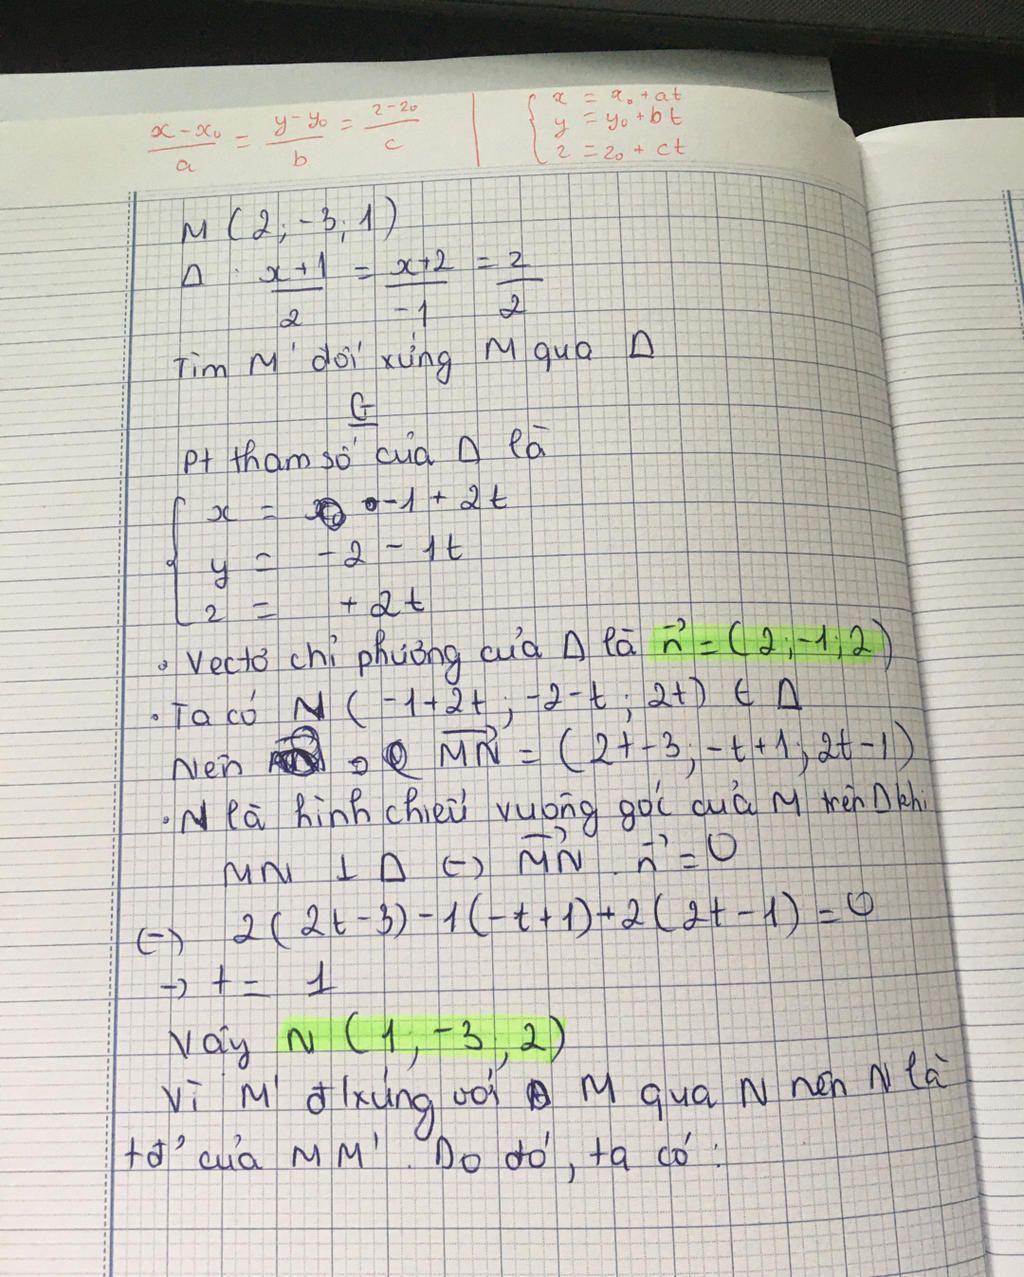 x - x₀/a = y - y₀/b = z - z₀/c | { x = x₀ + at
y = y₀ + bt
z = z₀ + ct
M (2; -3; 1)
Δ : x+1/2 = x+2/-1 = z/2
Tìm M' đối xứng M qua Δ
G
Pt tham số của Δ là
{ x = -1 + 2t
y = -2 - 1t
z = +2t
• Vectơ chỉ phương của Δ là n⃗ = (2; -1; 2)
• Ta có N (-1+2t; -2-t; 2t) ∈ Δ
Nên MN⃗ = (2t-3; -t+1; 2t-1)
• N là hình chiếu vuông góc của M trên Δ khi
MN ⊥ Δ (=) MN⃗ . n⃗ = 0
(=) 2(2t-3) -1(-t+1) +2(2t-1) = 0
→ t = 1
Vậy N (1; -3; 2)
Vì M' đ/xứng với M qua N nên N là
tđ' của MM'. Do đó, ta có :